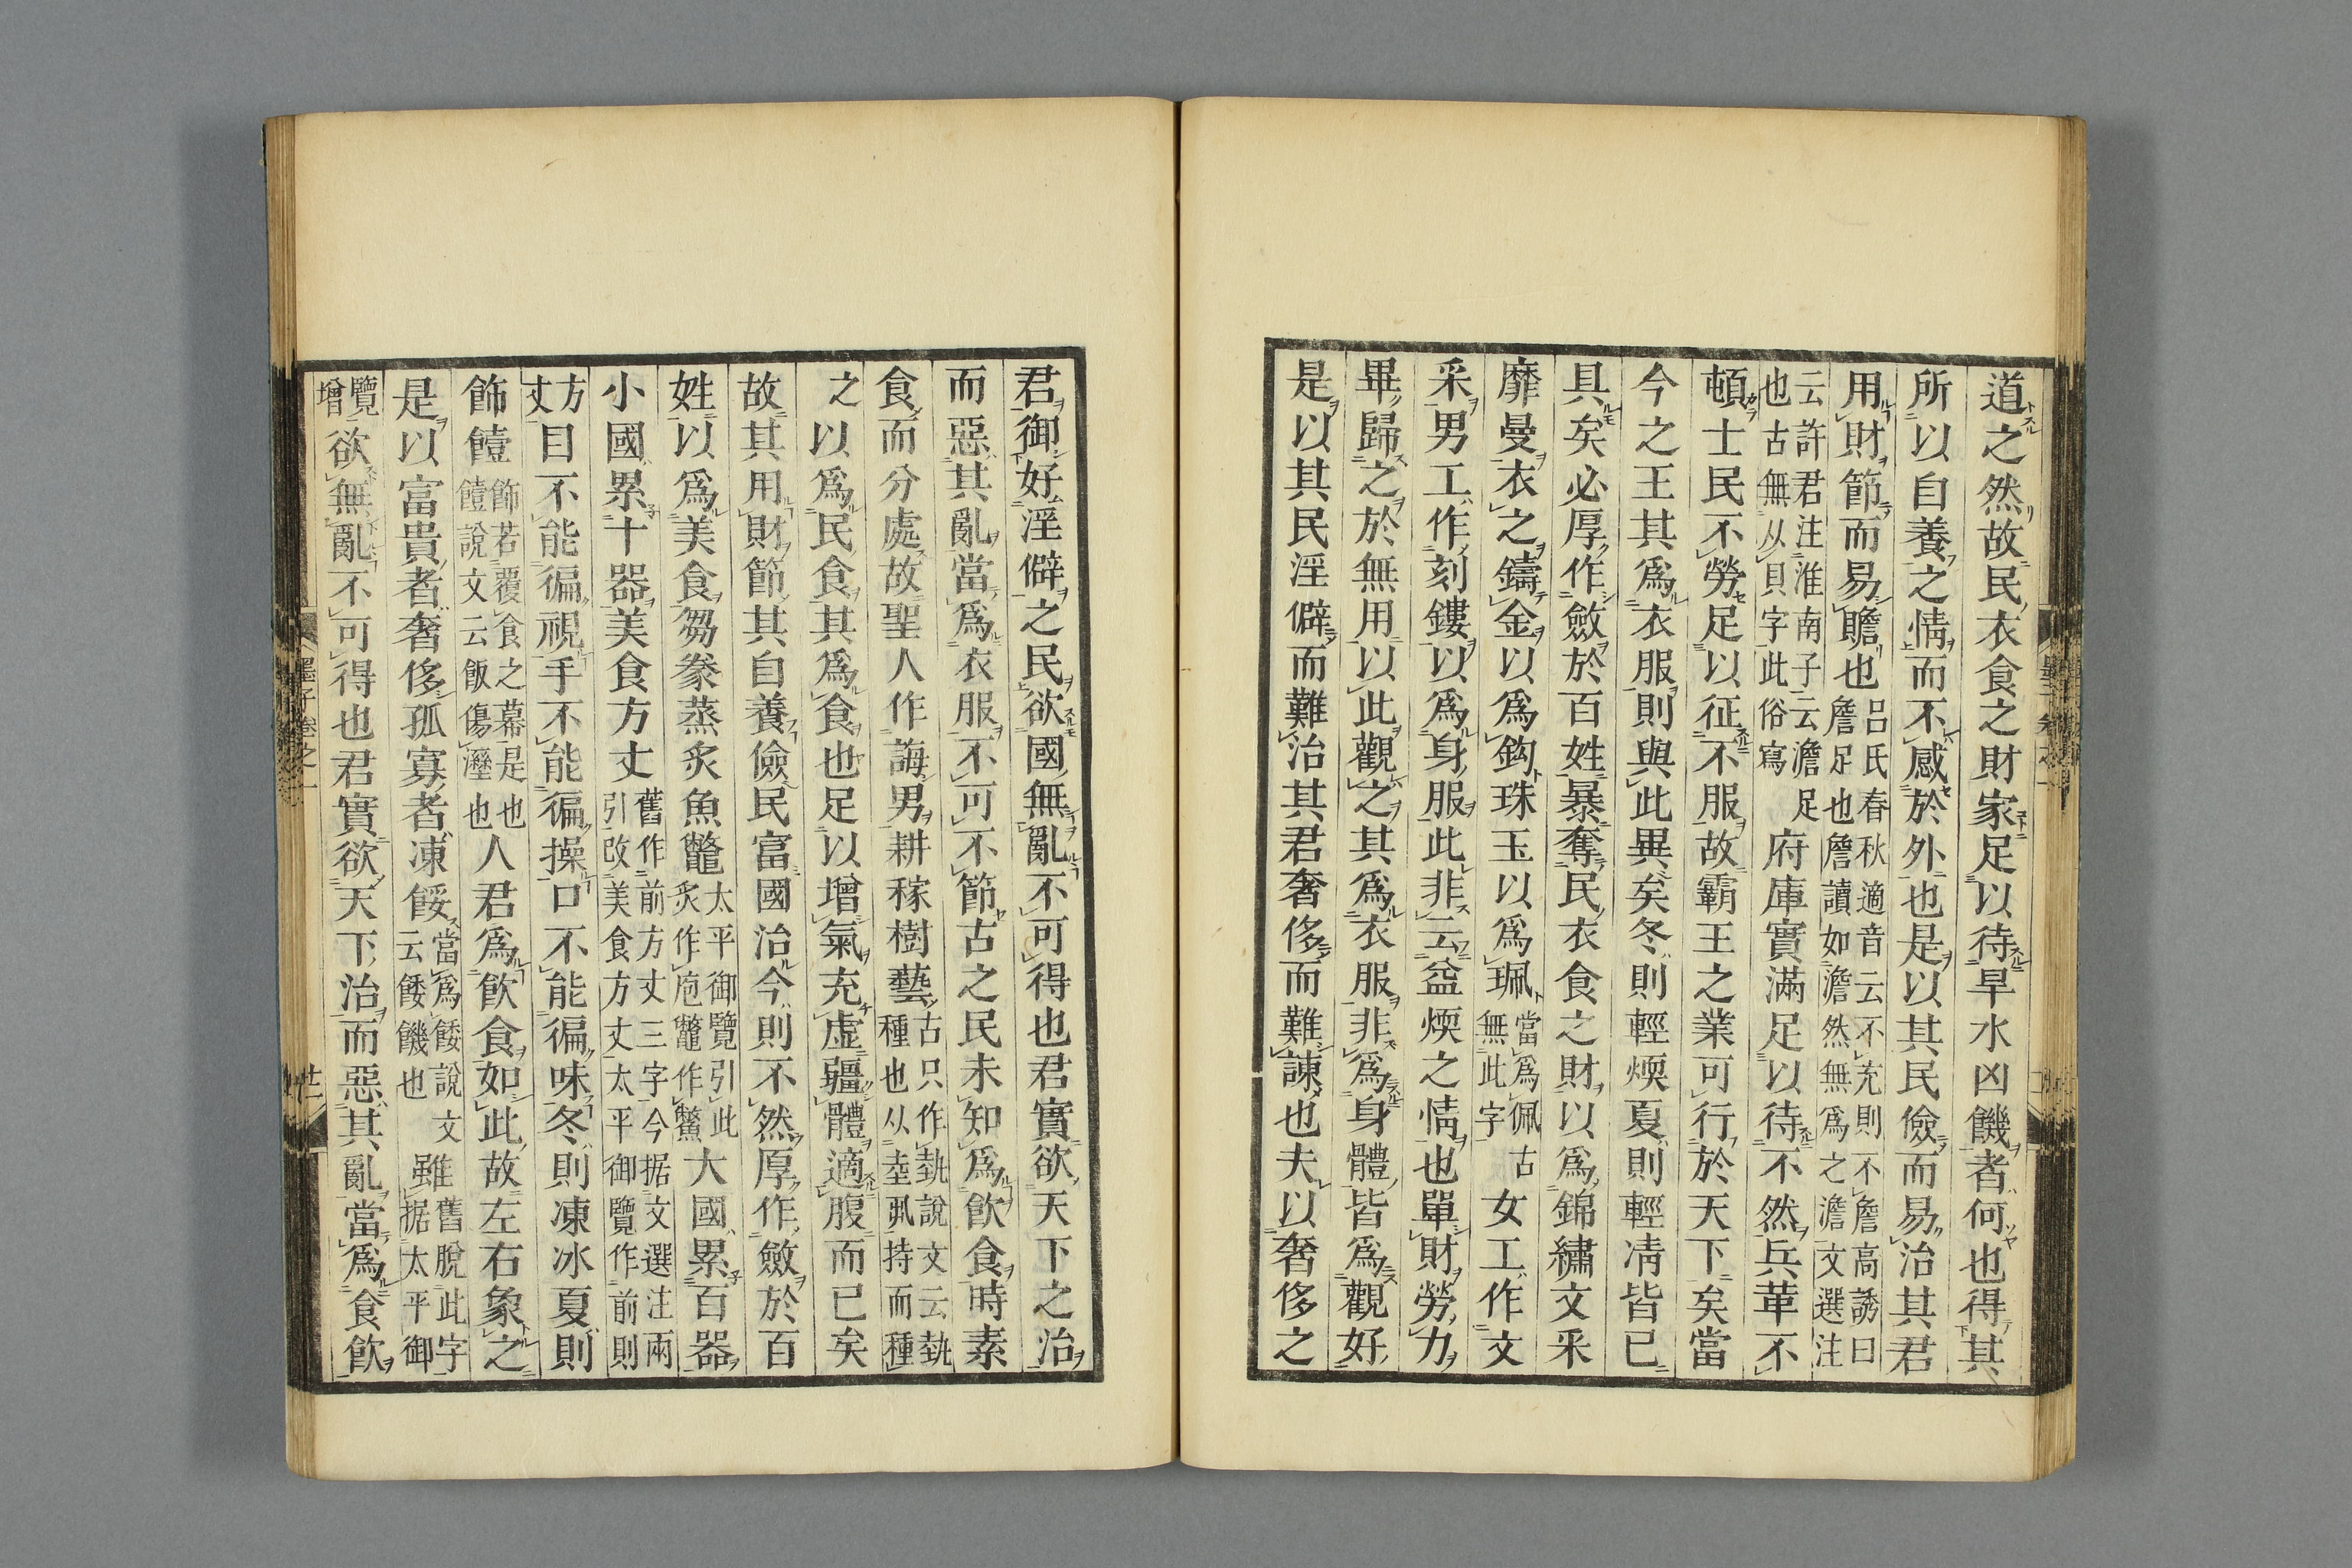 道之然故民衣食之財家足以待旱水凶饑者何也得其
所以自養之情而不感於外也是以其民儉而易治其君
用財節而易贍也呂氏春秋適音云不充則不詹高誘曰
詹足也詹讀如澹然無為之澹文選注
云許君注淮南子云澹足
也古無从貝字此俗寫府庫實滿足以待不然兵革不
頓士民不勞足以征不服故霸王之業可行於天下矣當
今之王其爲衣服則與此異矣冬則輕煗夏則輕凊皆已
具矣必厚作斂於百姓暴奪民衣食之財以爲錦繡文采
靡曼衣之鑄金以爲鈎珠玉以爲珮當爲佩古
無此字女工作文
采男工作刻鏤以爲身服此非云益煗之情也單財勞力
畢歸之於無用以此觀之其爲衣服非爲身體皆爲觀好
是以其民淫僻而難治其君奢侈而難諫也夫以奢侈之
君御好淫僻之民欲國無亂不可得也君實欲天下之治
而惡其亂當爲衣服不可不節古之民未知爲飲食時素
食而分處故聖人作誨男耕稼樹藝古只作埶說文云埶
種也从坴丮持而種
之以爲民食其爲食也足以增氣充虛彊體適腹而已矣
故其用財節其自養儉民富國治今則不然厚作斂於百
姓以爲美食芻豢蒸炙魚鼈太平御覽引此
炙作庖鼈作鱉大國累百器
小國累十器美食方丈舊作前方丈三字今据文選注兩
引改美食方丈太平御覽作前則
方
丈目不能徧視手不能徧操口不能徧味冬則凍冰夏則
飾饐飾若覆食之幕是也
饐說文云飯傷溼也人君爲飲食如此故左右象之
是以富貴者奢侈孤寡者凍餒當爲餧說文
云餧饑也雖舊脫此字
据太平御
覽
增欲無亂不可得也君實欲天下治而惡其亂當爲食飲
墨子卷之一